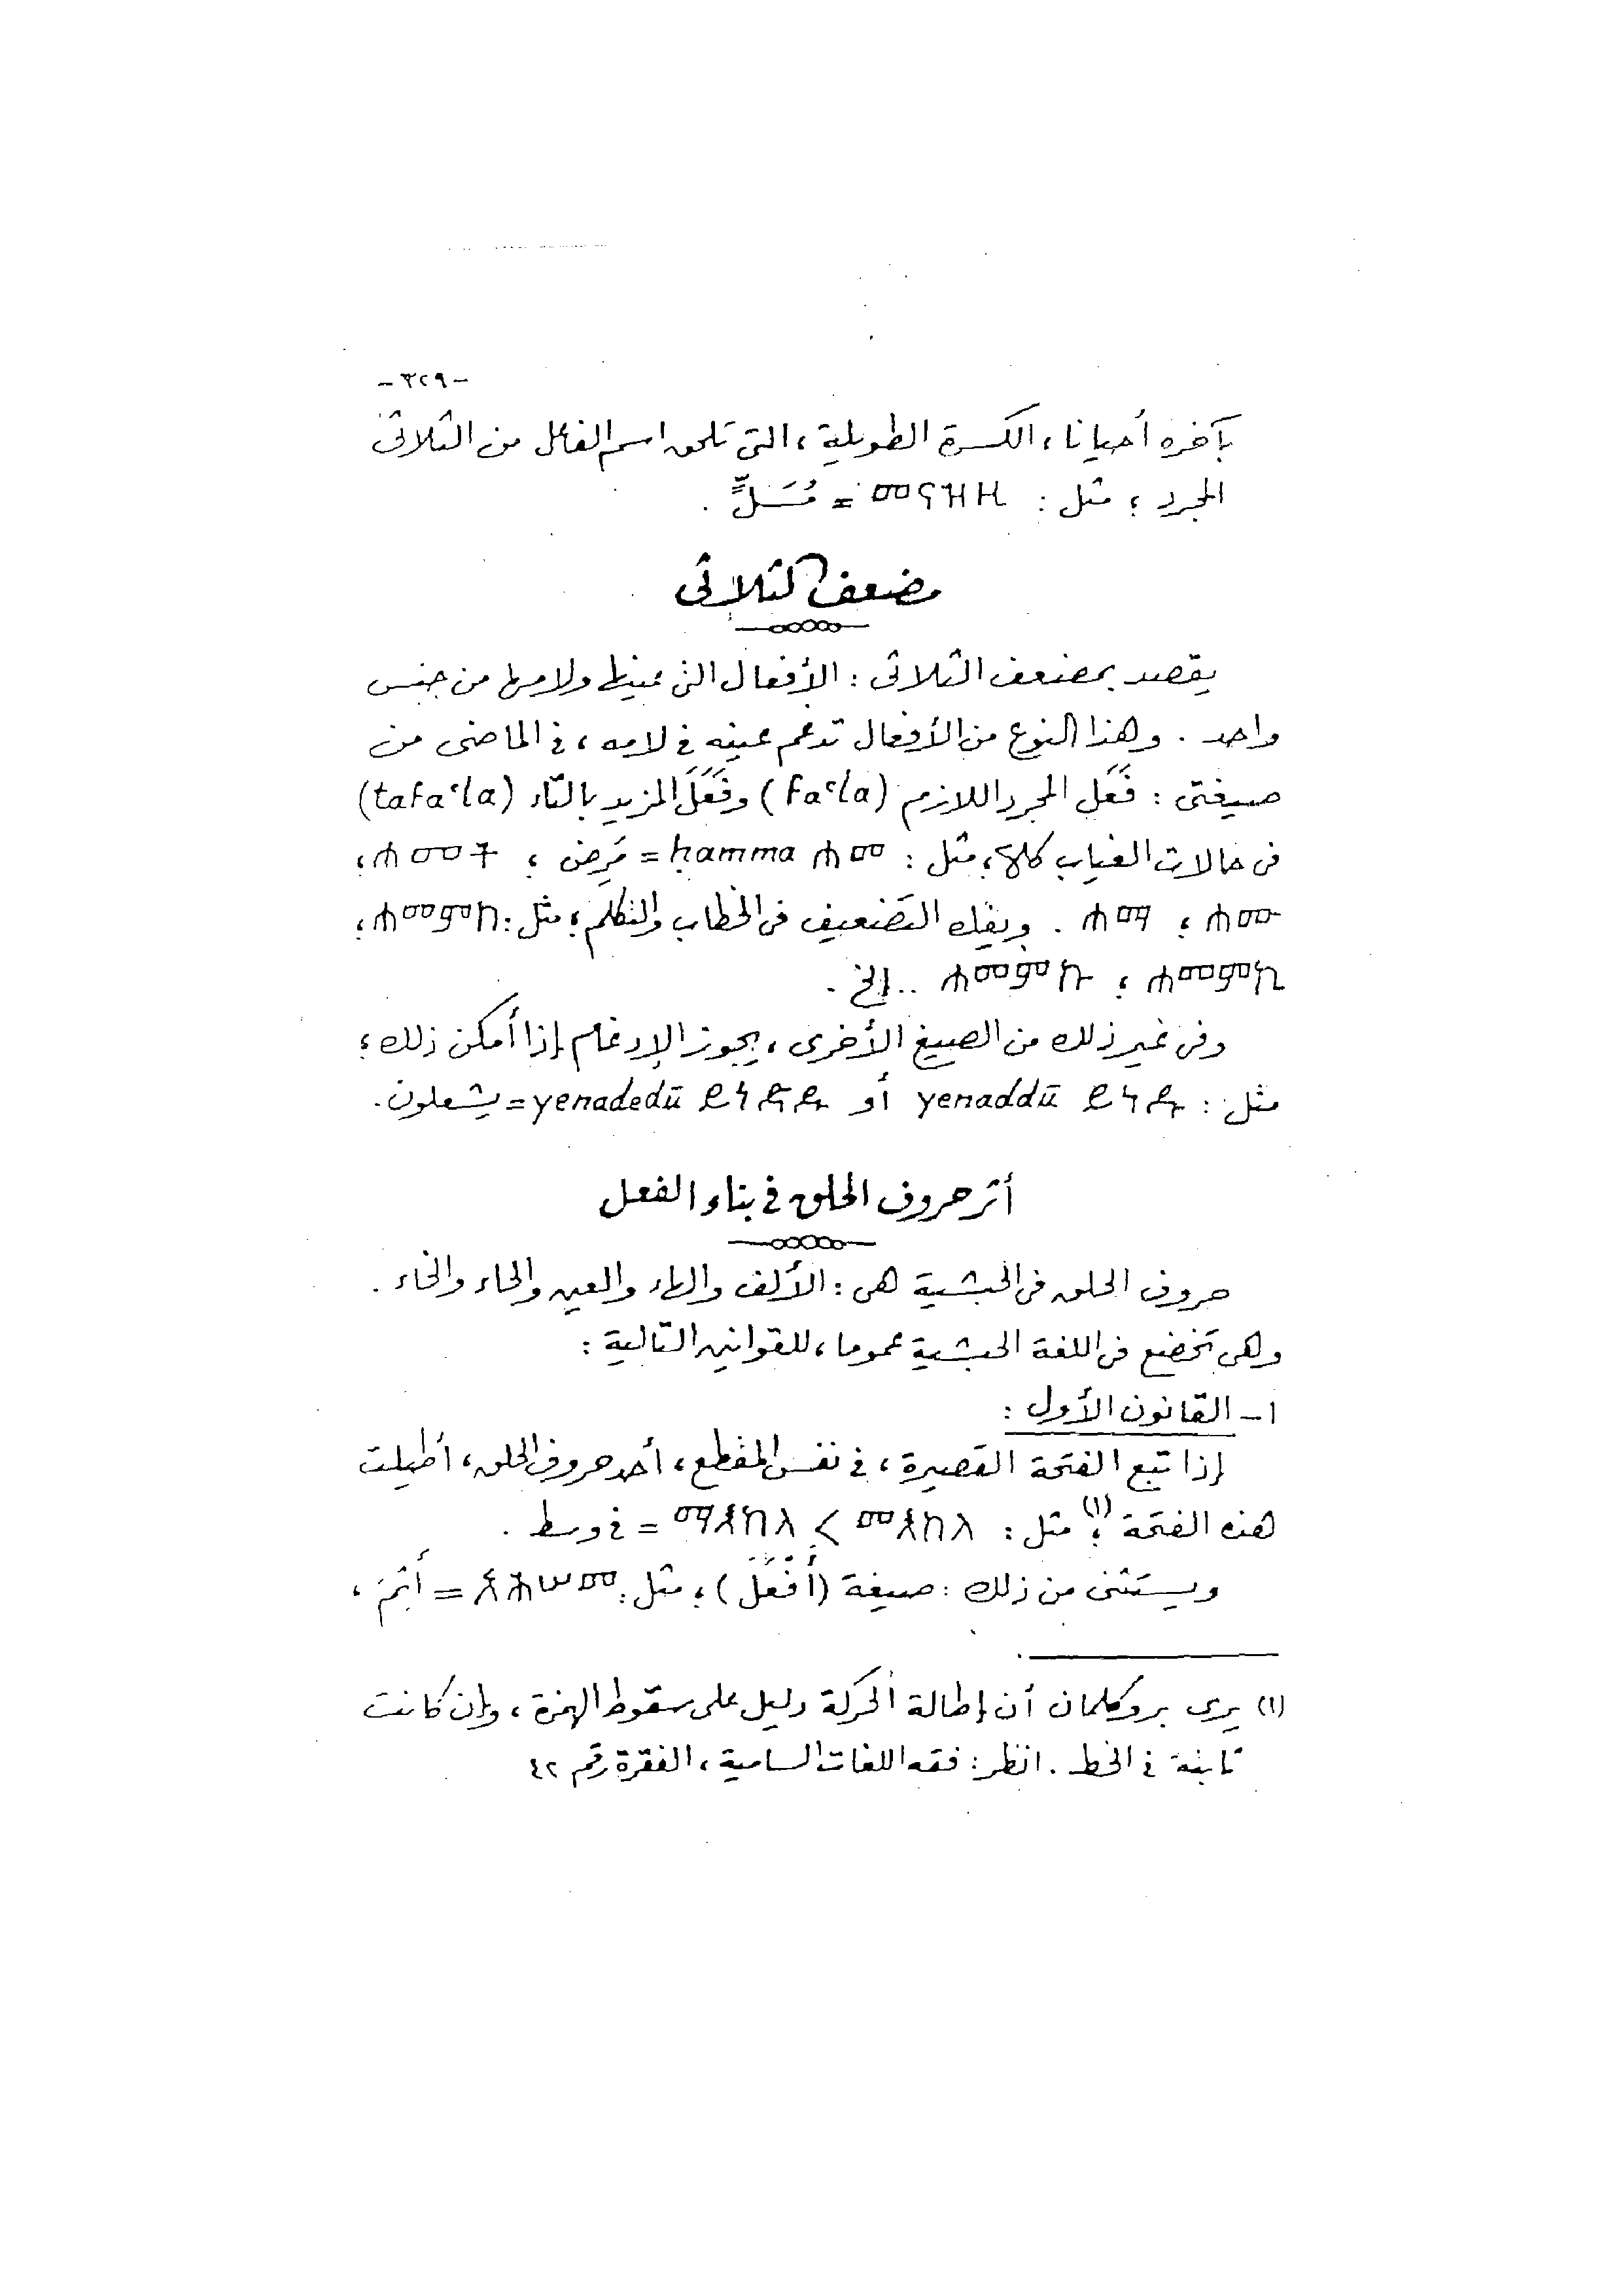 - ٣٢٩ -
بآخره أحيانا ، الكسرة الطويلة ، التى تلحق اسم الفاعل من الثلاثى
المجرد ؛ مثل : = مُسَلٍّ .
مضعف الثلاثى
يقصد بمضعف الثلاثى : الأفعال التى عينها ولامها من جنس
واحد . وهذا النوع من الأفعال تدغم عينه فى لامه ، فى الماضى من
صيغتى : فَعَل المجرد اللازم (faʿla) وفَعَلَ المزيد بالتاء (tafaʿla)
فى حالات الغياب كلها ؛ مثل : ሐመ ḥamma = مَرِضَ ؛ ሐመት ؛
ሐሙ ؛ ሐማ . ويفك التضعيف فى الخطاب والتكلم ؛ مثل : ሐመምከ ؛
ሐመምኪ ؛ ሐመምኩ .. إلخ .
وفى غير ذلك من الصيغ الأخرى ، يجوز الإدغام إذا أمكن ذلك ؛
مثل : ይነዱ yenaddū أو ይነድዱ yenadedū = يشعلون .
أثر حروف الحلق فى بناء الفعل
حروف الحلق فى الحبشية هى : الألف والهاء والعين والحاء والخاء .
وهى تخضع فى اللغة الحبشية عموما ، للقوانين التالية :
١ - القانون الأول :
إذا تبع الفتحة القصيرة ، فى نفس المقطع ، أحد حروف الحلق ، أطيلت
هذه الفتحة (١) ؛ مثل : መእከለ > ማእከለ = فى وسط .
ويستثنى من ذلك : صيغة (أَفْعَلَ) ؛ مثل : = أَثِمَ ،
(١) يرى بروكلمان أن إطالة الحركة دليل على سقوط الهمزة ، وإن كانت
ثابتة فى الخط . انظر : فقه اللغات السامية ، الفقرة رقم ٤٢